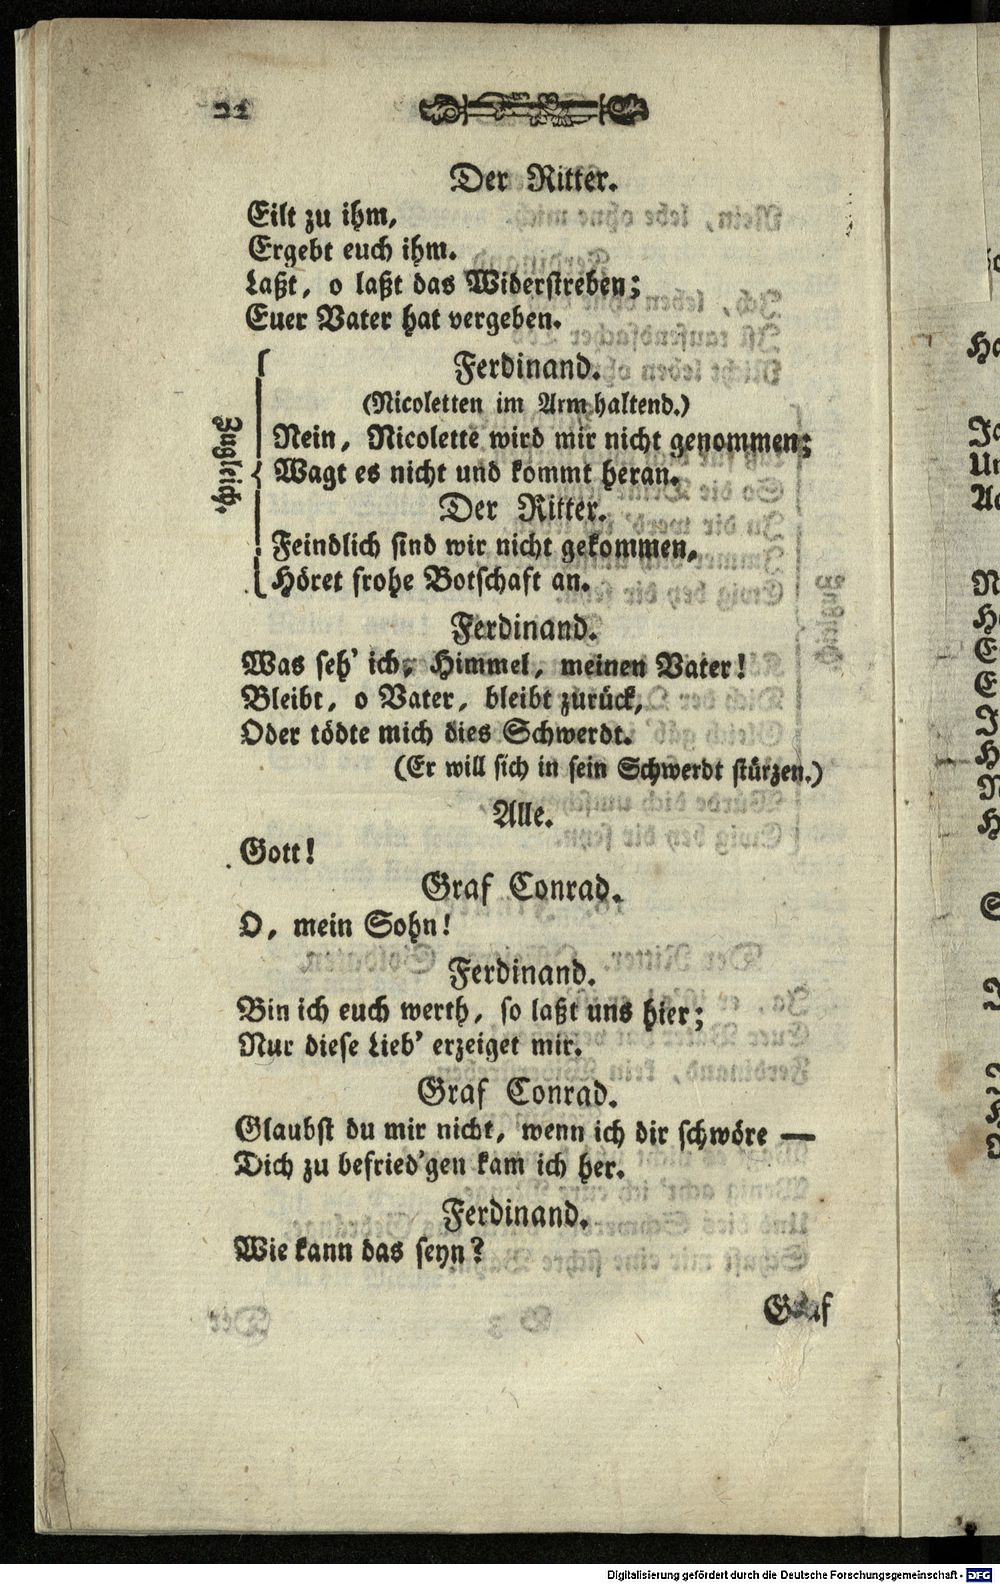 22
Der Ritter.
Eilt zu ihm,
Ergebt euch ihm.
Laßt, o laßt das Widerstreben;
Euer Vater hat vergeben.
Zugleich.
Ferdinand.
(Nicoletten im Arm haltend.)
Nein, Nicolette wird mir nicht genommen;
Wagt es nicht und kommt heran.
Der Ritter.
Feindlich sind wir nicht gekommen,
Höret frohe Botschaft an.
Ferdinand.
Was seh' ich, Himmel, meinen Vater!
Bleibt, o Vater, bleibt zurück,
Oder tödte mich dies Schwerdt.
(Er will sich in sein Schwerdt stürzen.)
Alle.
Gott!
Graf Conrad.
O, mein Sohn!
Ferdinand.
Bin ich euch werth, so laßt uns hier;
Nur diese Lieb' erzeiget mir.
Graf Conrad.
Glaubst du mir nicht, wenn ich dir schwöre —
Dich zu befried'gen kam ich her.
Ferdinand.
Wie kann das seyn?
Graf
Digitalisierung gefördert durch die Deutsche Forschungsgemeinschaft - DFG